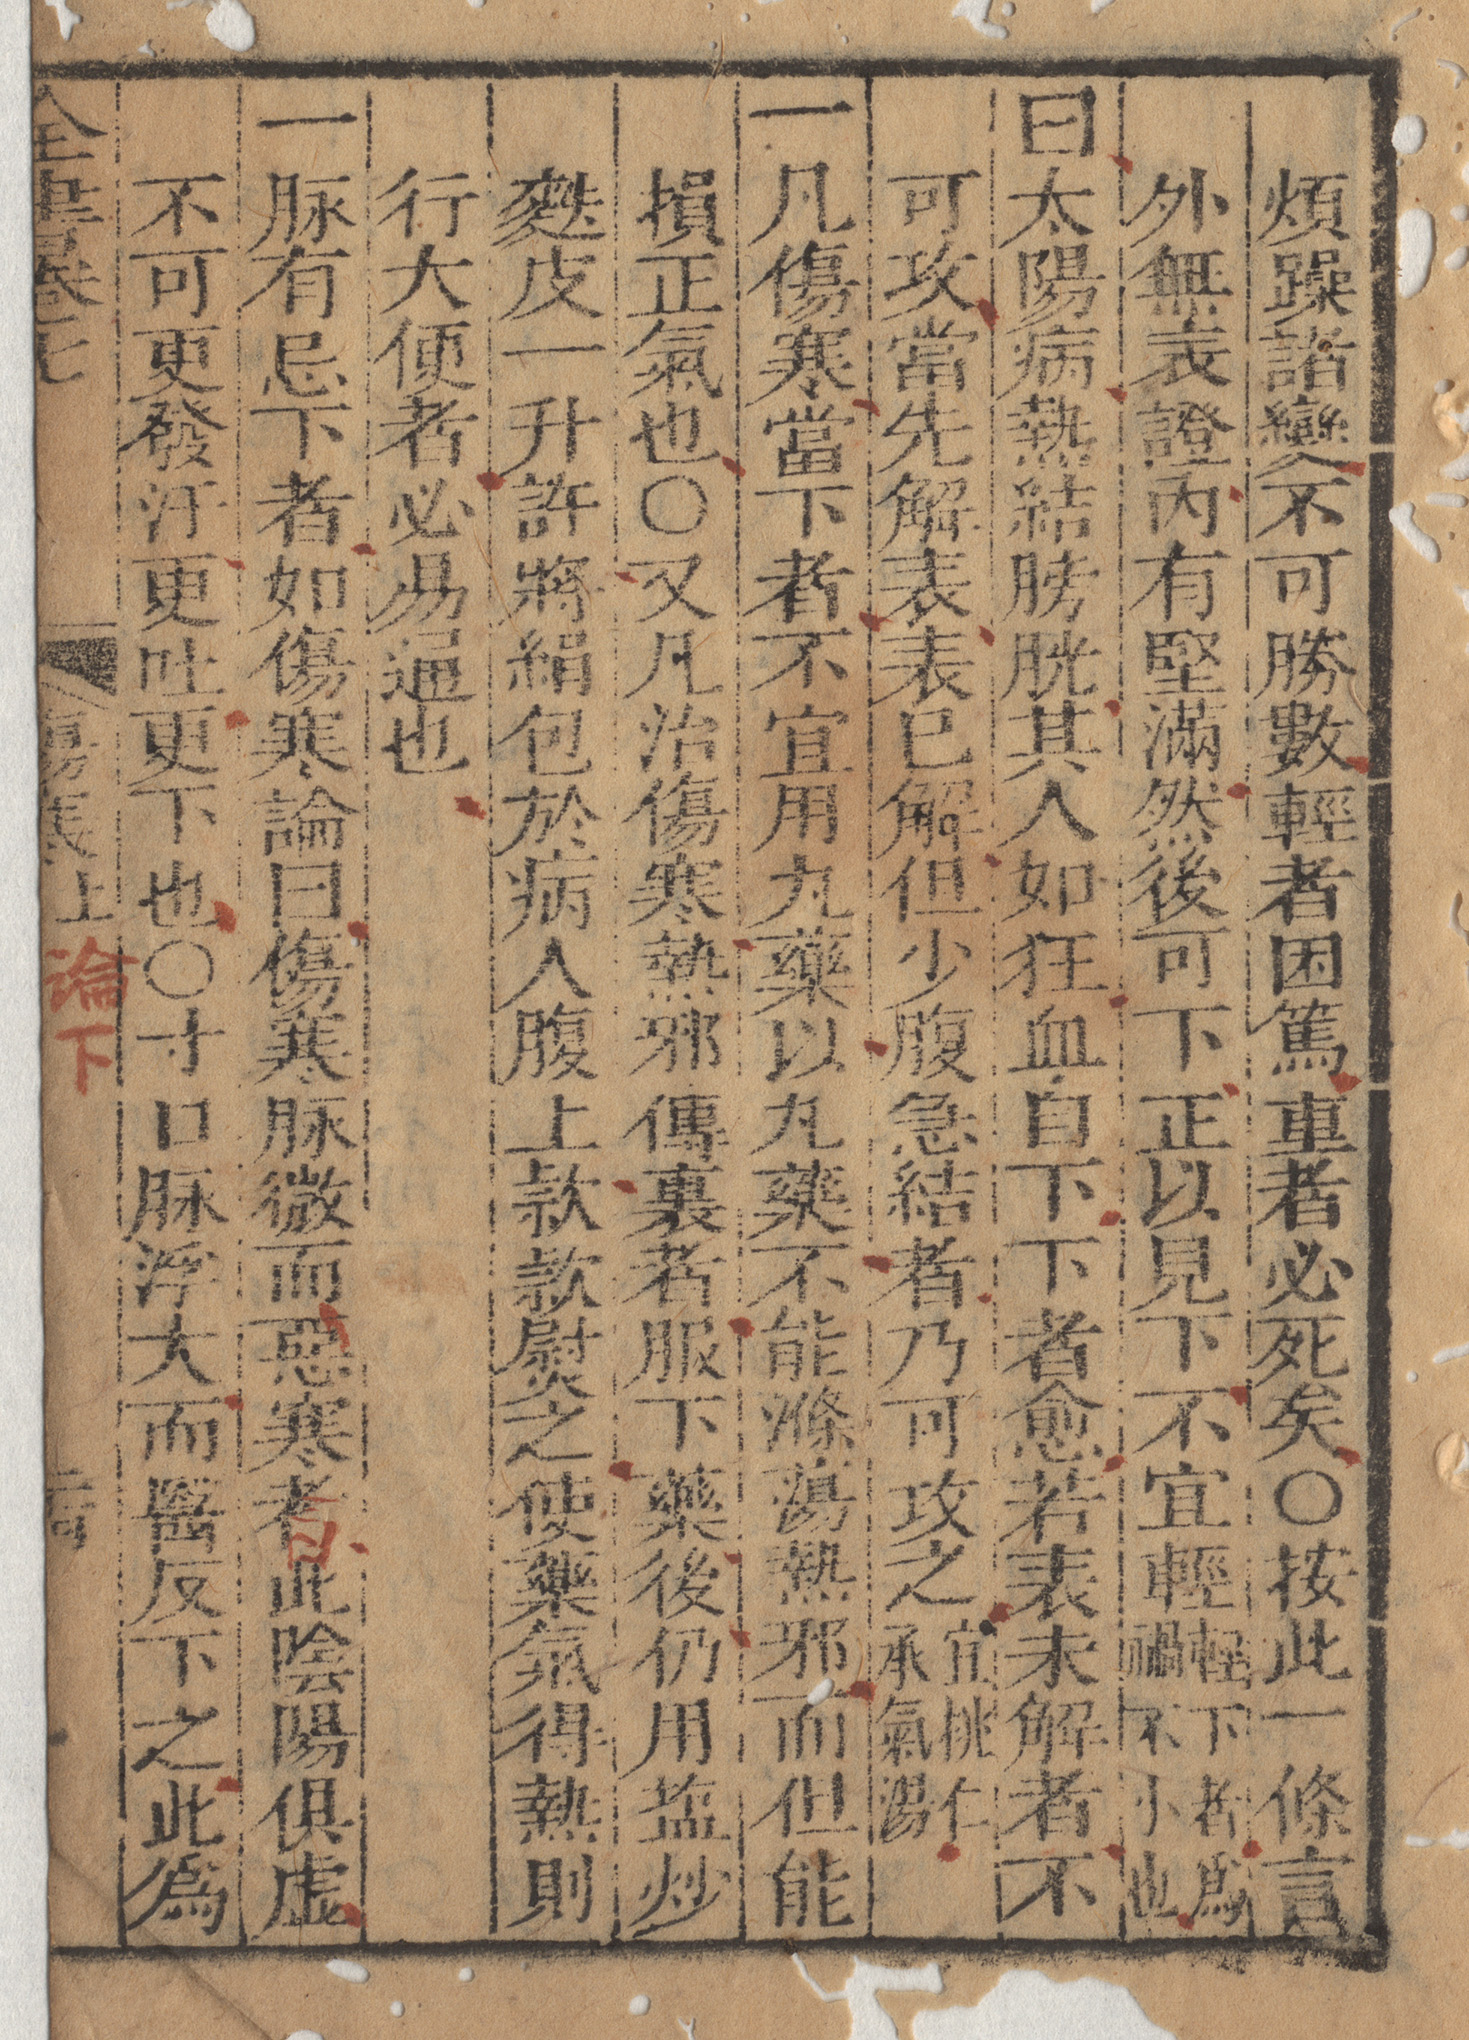 煩躁諸變不可勝數輕者困篤重者必死矣○按此一條言
外無表證內有堅滿然後可下正以見下不宜輕輕下者爲禍不小也
曰太陽病熱結膀胱其人如狂血自下下者愈若表未解者不
可攻當先解表表已解但少腹急結者乃可攻之宜桃仁承氣湯
一凡傷寒當下者不宜用丸藥以丸藥不能滌蕩熱邪而但能
損正氣也○又凡治傷寒熱邪傳裏者服下藥後仍用盐炒
麩皮一升許將絹包於病人腹上款款熨之使藥氣得熱則
行大便者必易通也
一脉有忌下者如傷寒論曰傷寒脉微而惡寒者此陰陽俱虛
不可更發汗更吐更下也○寸口脉浮大而醫反下之此爲
全書卷七
傷寒上
論下